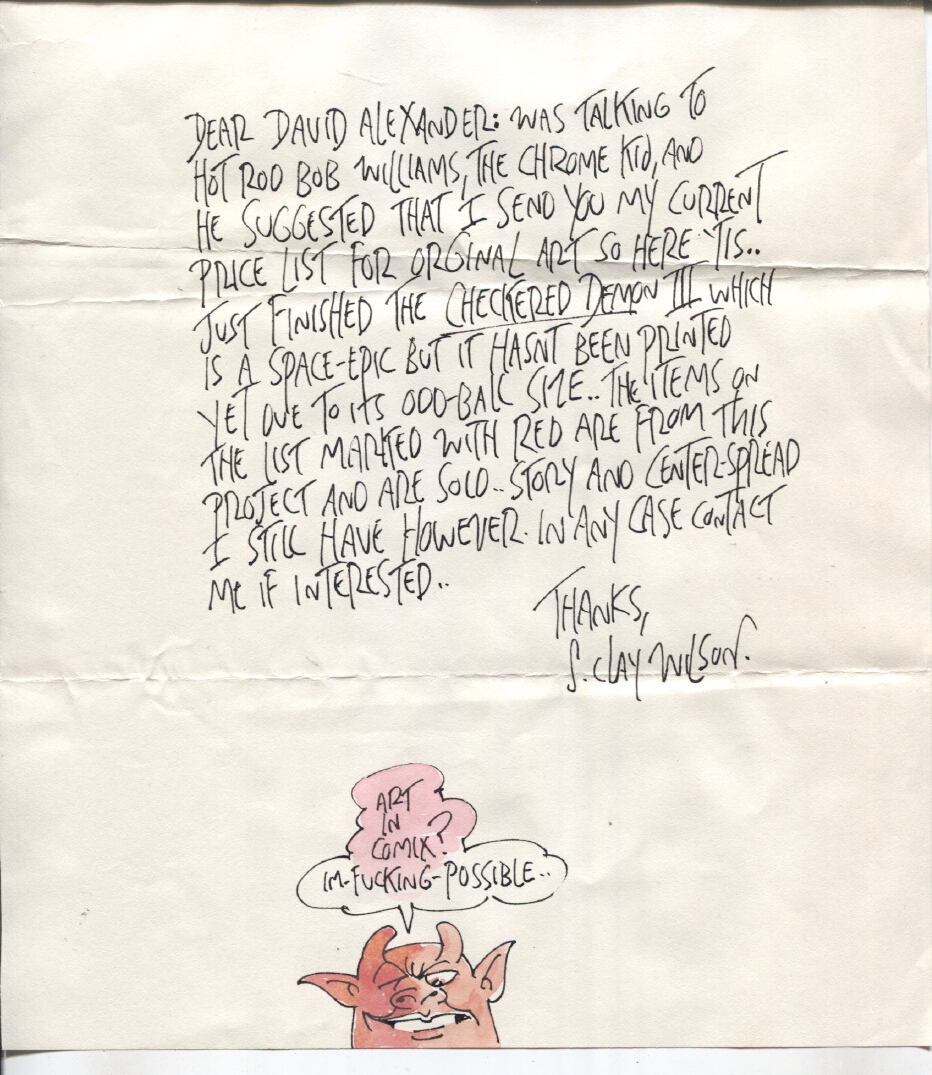 DEAR DAVID ALEXANDER: WAS TALKING TO
HOT ROD BOB WILLIAMS, THE CHROME KID, AND
HE SUGGESTED THAT I SEND YOU MY CURRENT
PRICE LIST FOR ORGINAL ART SO HERE 'TIS..
JUST FINISHED THE CHECKERED DEMON III WHICH
IS A SPACE-EPIC BUT IT HASNT BEEN PRINTED
YET DUE TO ITS ODD-BALL SIZE.. THE ITEMS ON
THE LIST MARKED WITH RED ARE FROM THIS
PROJECT AND ARE SOLD.. STORY AND CENTER-SPREAD
I STILL HAVE HOWEVER. IN ANY CASE CONTACT
ME IF INTERESTED..
THANKS,
S. CLAY WILSON.
ART
IN
COMIX?
IM-FUCKING-POSSIBLE..